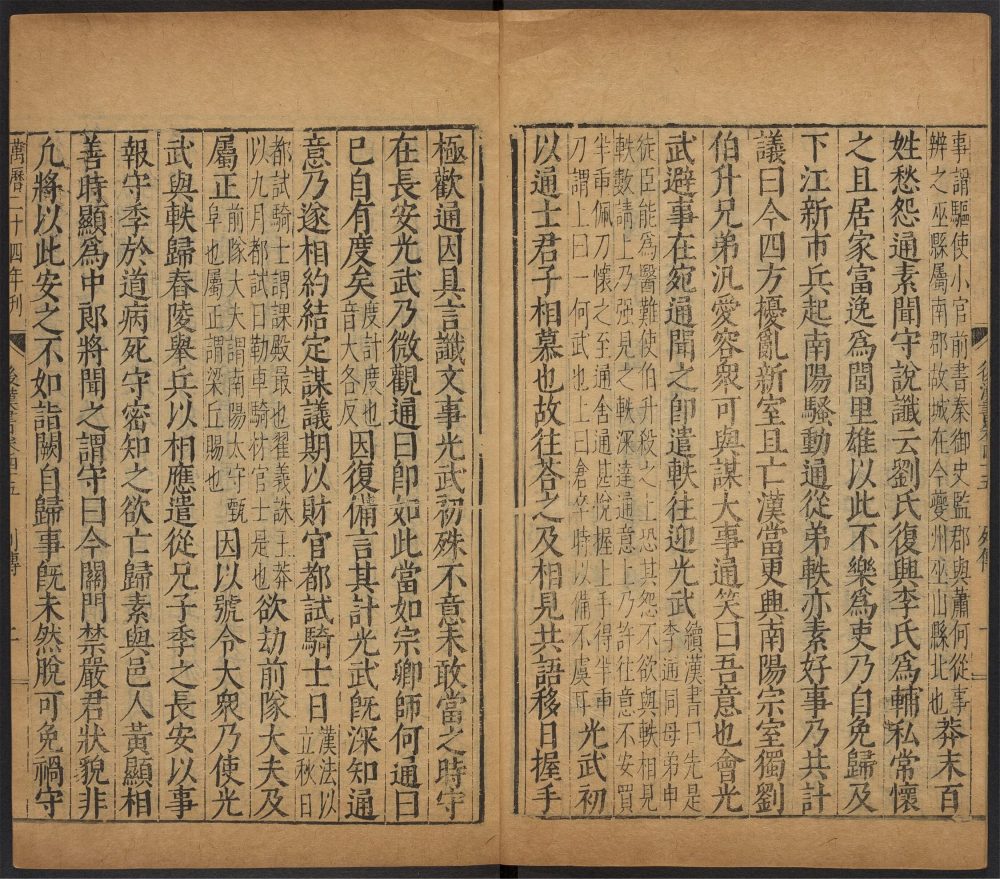 事謂驅使小官前書秦御史監郡與蕭何從事
辨之巫縣屬南郡故城在今夔州巫山縣北也
莽末百
姓愁怨通素聞守說讖云劉氏復興李氏爲輔私常懷
之且居家富逸爲閭里雄以此不樂爲吏乃自免歸及
下江新市兵起南陽騷動通從弟軼亦素好事乃共計
議曰今四方擾亂新室且亡漢當更興南陽宗室獨劉
伯升兄弟汎愛容衆可與謀大事通笑曰吾意也會光
武避事在宛通聞之卽遣軼往迎光武
續漢書曰先是
李通同母弟申
徒臣能爲醫難使伯升殺之上恐其怨不欲與軼相見
軼數請上乃强見之軼深達通意上乃許往意不安買
半臿佩刀懷之至通舍通甚悅握上手得半臿
刀謂上曰一何武也上曰倉卒時以備不虞耳
光武初
以通士君子相慕也故往荅之及相見共語移日握手
極歡通因具言讖文事光武初殊不意未敢當之時守
在長安光武乃微觀通曰卽如此當如宗卿師何通曰
已自有度矣
度計度也
音大各反
因復備言其計光武旣深知通
意乃遂相約結定謀議期以財官都試騎士日
漢法以
立秋日
都試騎士謂課殿最也翟義誅王莽
以九月都試日勒車騎材官士是也
欲劫前隊大夫及
屬正
前隊大夫謂南陽太守甄
阜也屬正謂梁丘賜也
因以號令大衆乃使光
武與軼歸舂陵舉兵以相應遣從兄子季之長安以事
報守季於道病死守密知之欲亡歸素與邑人黃顯相
善時顯爲中郎將聞之謂守曰今關門禁嚴君狀貌非
凢將以此安之不如詣闕自歸事旣未然脫可免禍守
萬曆二十四年刊
後漢書卷四十五
列傳
二